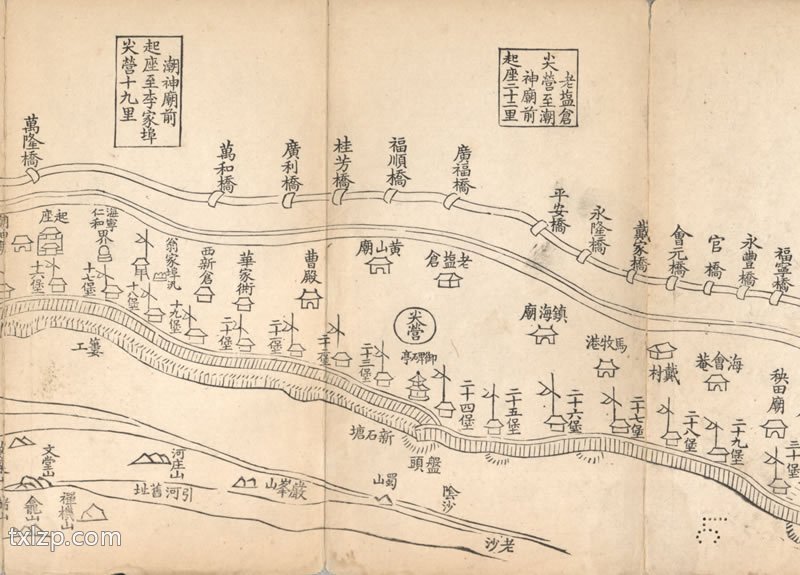 老塩倉
尖營至潮
神廟前
起座二十二里
潮神廟前
起座至李家埠
尖營十九里
福寧橋
永豊橋
官橋
會元橋
戴家橋
永隆橋
平安橋
廣福橋
福順橋
桂芳橋
廣利橋
萬和橋
萬隆橋
秧田廟
海會菴
戴村
馬牧港
鎮海廟
老塩倉
黄山廟
尖營
御碑亭
曹殿
華家衖
西新倉
翁家埠汛
海寧
仁和界
起座
三十堡
二十九堡
二十八堡
二十七堡
二十六堡
二十五堡
二十四堡
二十三堡
二十二堡
二十堡
十九堡
十八堡
十七堡
十六堡
新石塘
盤頭
簍工
陰沙
老沙
蜀山
巖峯山
引河舊址
河庄山
文堂山
禪機山
龕山
5
txlzp.com